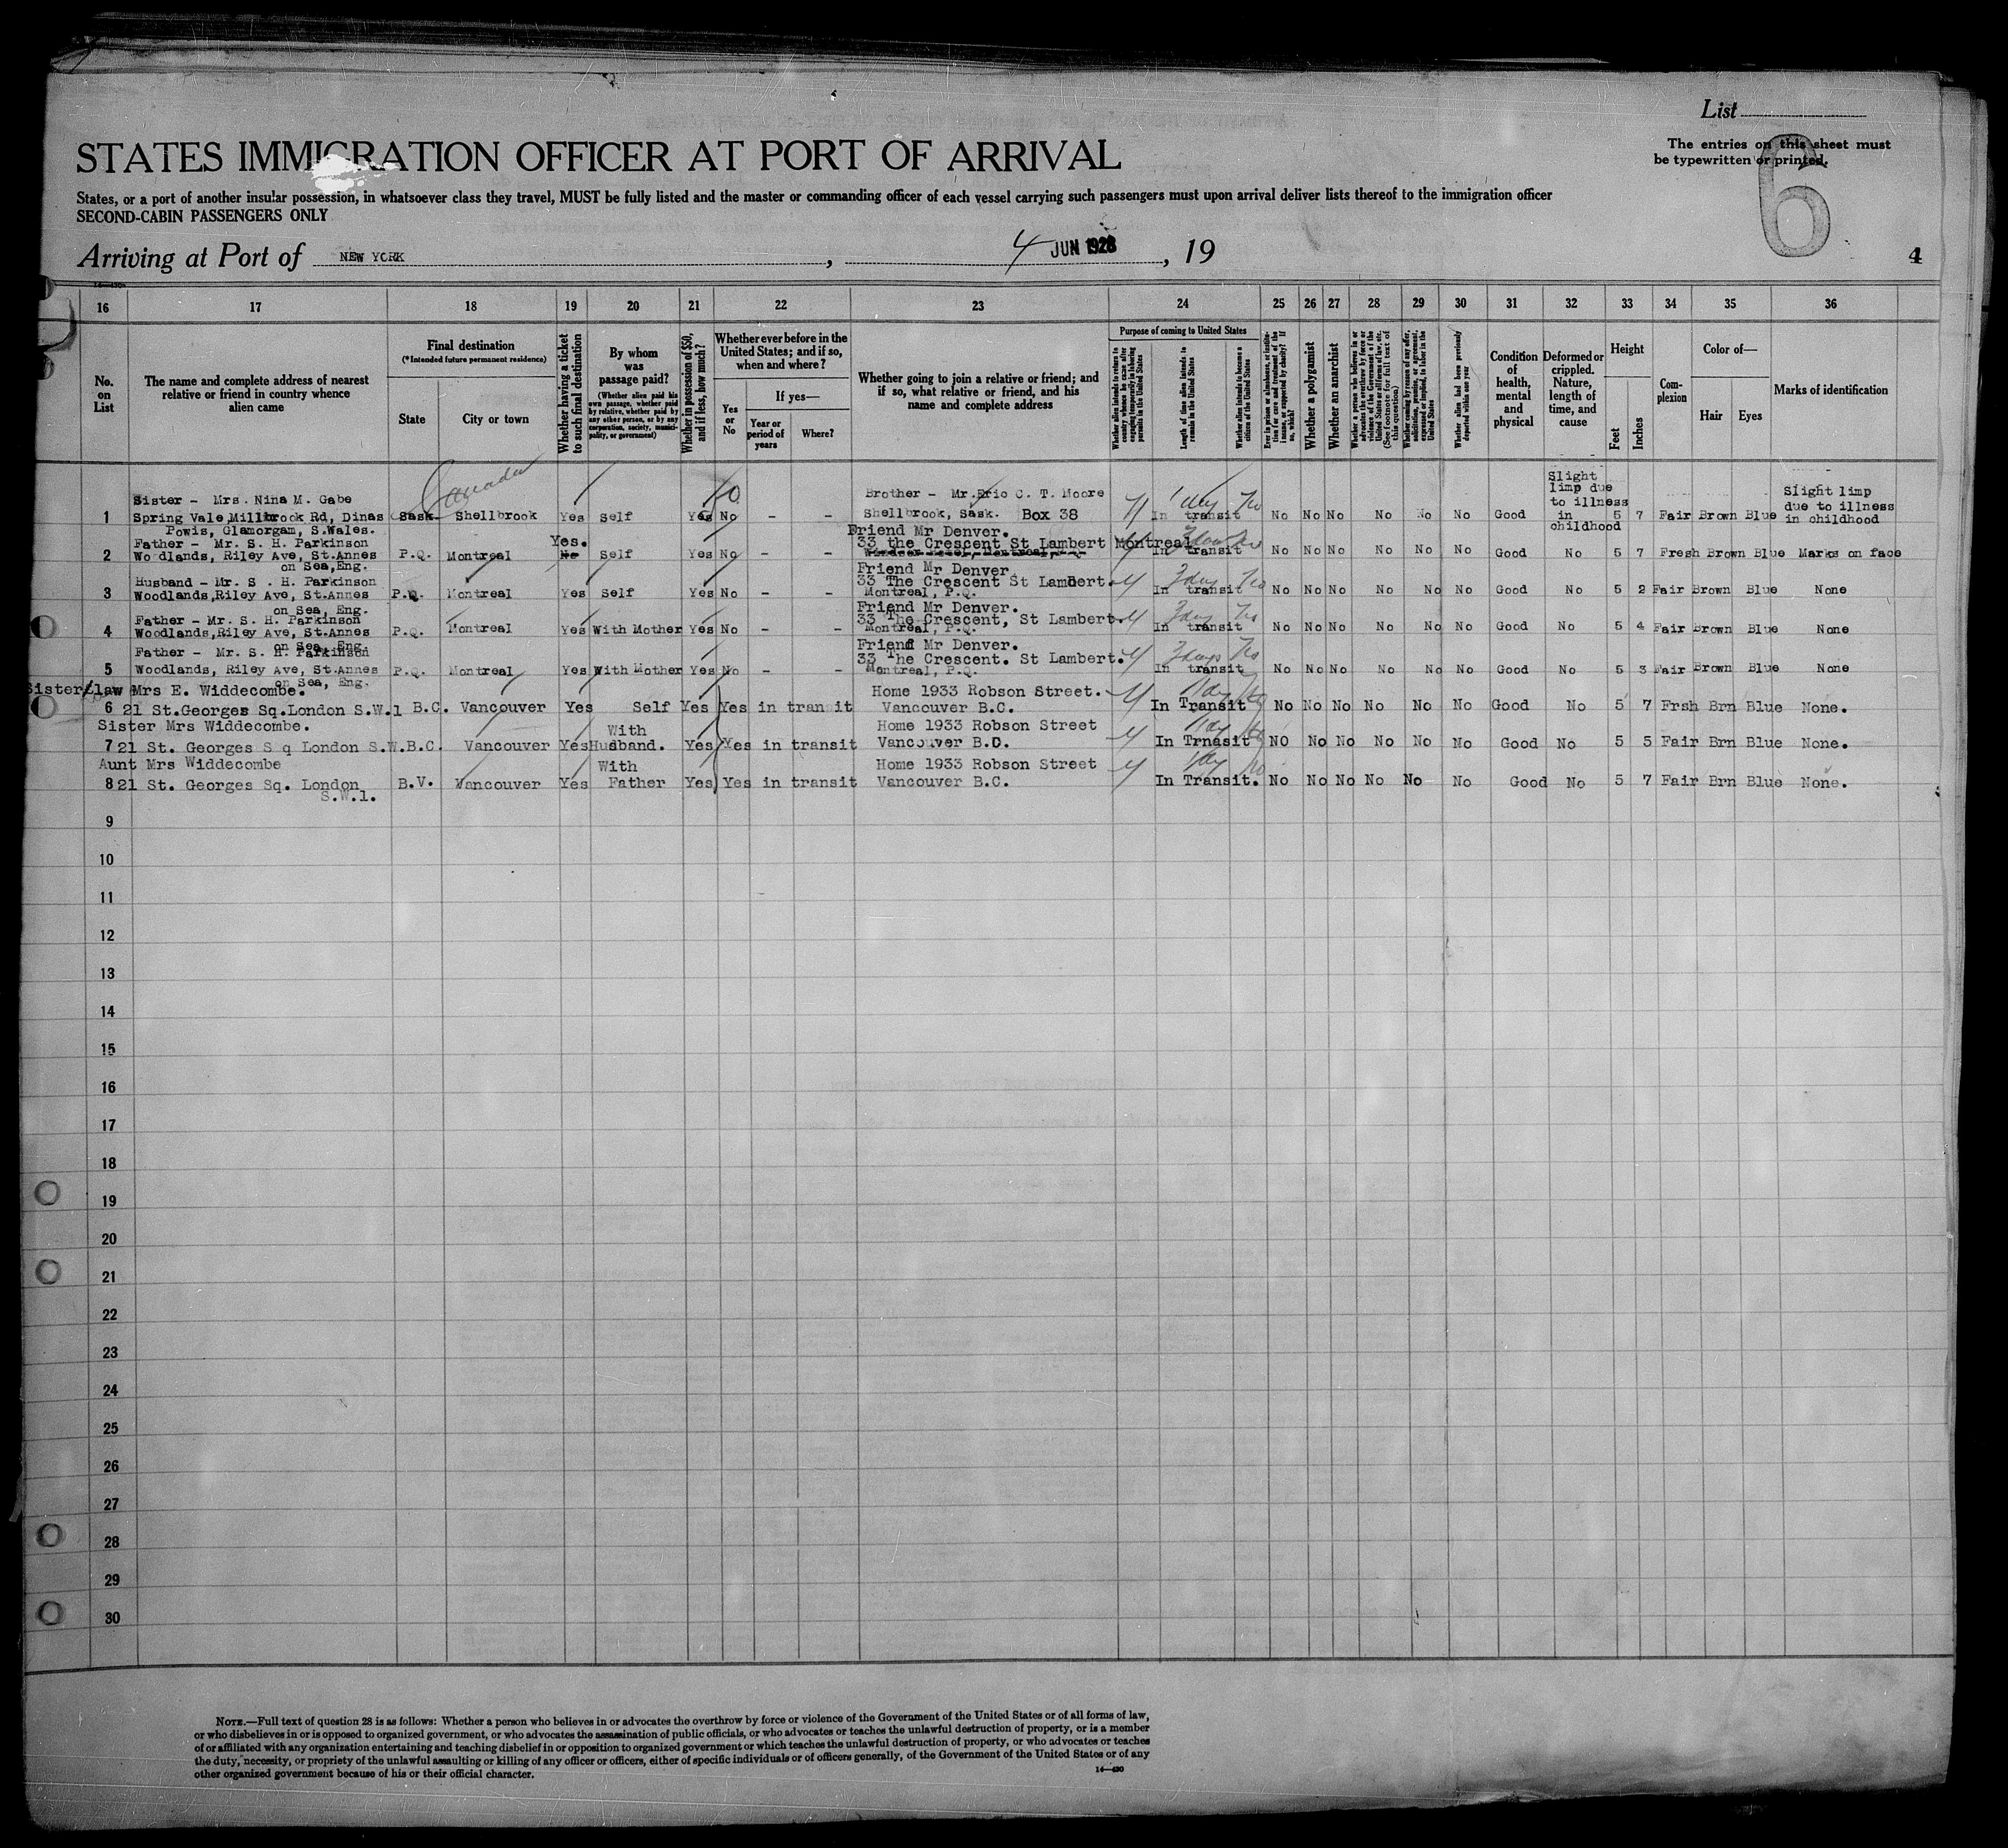 List
The entries on this sheet must
be typewritten or printed.
6
STATES IMMIGRATION OFFICER AT PORT OF ARRIVAL
States, or a port of another insular possession, in whatsoever class they travel, MUST be fully listed and the master or commanding officer of each vessel carrying such passengers must upon arrival deliver lists thereof to the immigration officer
SECOND-CABIN PASSENGERS ONLY
Arriving at Port of NEW YORK, 4 JUN 1928, 19
4
16 17 18 19 20 21 22 23 24 25 26 27 28 29 30 31 32 33 34 35 36
No. on List
The name and complete address of nearest relative or friend in country whence alien came
Final destination
(*Intended future permanent residence)
State
City or town
Whether having a ticket to such final destination
By whom was passage paid?
(Whether alien paid his own passage, whether paid by relative, whether paid by any other person, or by any corporation, society, municipality, or government)
Whether in possession of $50, and if less, how much?
Whether ever before in the United States; and if so, when and where?
Yes or No
If yes—
Year or period of years
Where?
Whether going to join a relative or friend; and if so, what relative or friend, and his name and complete address
Purpose of coming to United States
Length of time alien intends to remain in the United States
Whether alien intends to become a citizen of the United States
Whether a polygamist
Whether an anarchist
Whether alien had been previously deported within one year
Condition of health, mental and physical
Deformed or crippled. Nature, length of time, and cause
Height
Feet
Inches
Complexion
Color of—
Hair
Eyes
Marks of identification
Canada
1 Sister - Mrs. Nina M. Gabe
Spring Vale, Millbrook Rd, Dinas
Powis, Glamorgam, S.Wales.
Sask. Shellbrook Yes Self Yes No - -
Brother - Mr. Eric C. T. Moore
Shellbrook, Sask. Box 38
In transit 1 day No No No No No No No Good
Slight limp due to illness in childhood
5 7 Fair Brown Blue
Slight limp due to illness in childhood
2 Father - Mr. S. H. Parkinson
Woodlands, Riley Ave, St.Annes
on Sea, Eng.
P.Q. Montreal Yes. No Self Yes No - -
Friend Mr Denver.
33 the Crescent St Lambert Montreal
In transit No No No No No No Good No 5 7 Fresh Brown Blue Marks on face
3 Husband - Mr. S . H. Parkinson
Woodlands,Riley Ave, St.Annes
on Sea, Eng.
P.Q. Montreal Yes Self Yes No - -
Friend Mr Denver
33 The Crescent St Lambert.
Montreal, P.Q.
In transit 3 days No No No No No No No Good No 5 2 Fair Brown Blue None
4 Father - Mr. S. H. Parkinson
Woodlands,Riley Ave, St.Annes
on Sea, Eng.
P.Q. Montreal Yes With Mother Yes No - -
Friend Mr Denver.
33 The Crescent, St Lambert.
Montreal, P.Q.
In transit 3 days No No No No No No No Good No 5 4 Fair Brown Blue None
5 Father - Mr. S. H. Parkinson
Woodlands, Riley Ave, St.Annes
on Sea, Eng.
P.Q. Montreal Yes With Mother Yes No - -
Friend Mr Denver.
33 The Crescent. St Lambert.
Montreal, P.Q.
In transit 3 days No No No No No No No Good No 5 3 Fair Brown Blue None
Sister/law Mrs E. Widdecombe.
6 21 St.Georges Sq.London S.W.1 B.C. Vancouver Yes Self Yes Yes in transit
Home 1933 Robson Street.
Vancouver B.C.
In Transit 1 day No No No No No No No Good No 5 7 Frsh Brn Blue None.
Sister Mrs Widdecombe.
7 21 St. Georges S q London S.W. B.C. Vancouver Yes With Husband. Yes Yes in transit
Home 1933 Robson Street
Vancouver B.D.
In Trnasit 1 day No NO No No No No No Good No 5 5 Fair Brn Blue None.
Aunt Mrs Widdecombe
8 21 St. Georges Sq. London
S.W.1.
B.V. Vancouver Yes With Father Yes Yes in transit
Home 1933 Robson Street
Vancouver B.C.
In Transit. 1 day No No No No No No No Good No 5 7 Fair Brn Blue None.
9
10
11
12
13
14
15
16
17
18
19
20
21
22
23
24
25
26
27
28
29
30
NOTE.—Full text of question 28 is as follows: Whether a person who believes in or advocates the overthrow by force or violence of the Government of the United States or of all forms of law,
or who disbelieves in or is opposed to organized government, or who advocates the assassination of public officials, or who advocates or teaches the unlawful destruction of property, or is a member
of or affiliated with any organization entertaining and teaching disbelief in or opposition to organized government or which teaches the unlawful destruction of property, or who advocates or teaches
the duty, necessity, or propriety of the unlawful assaulting or killing of any officer or officers, either of specific individuals or of officers generally, of the Government of the United States or of any
other organized government because of his or their official character.
14—430